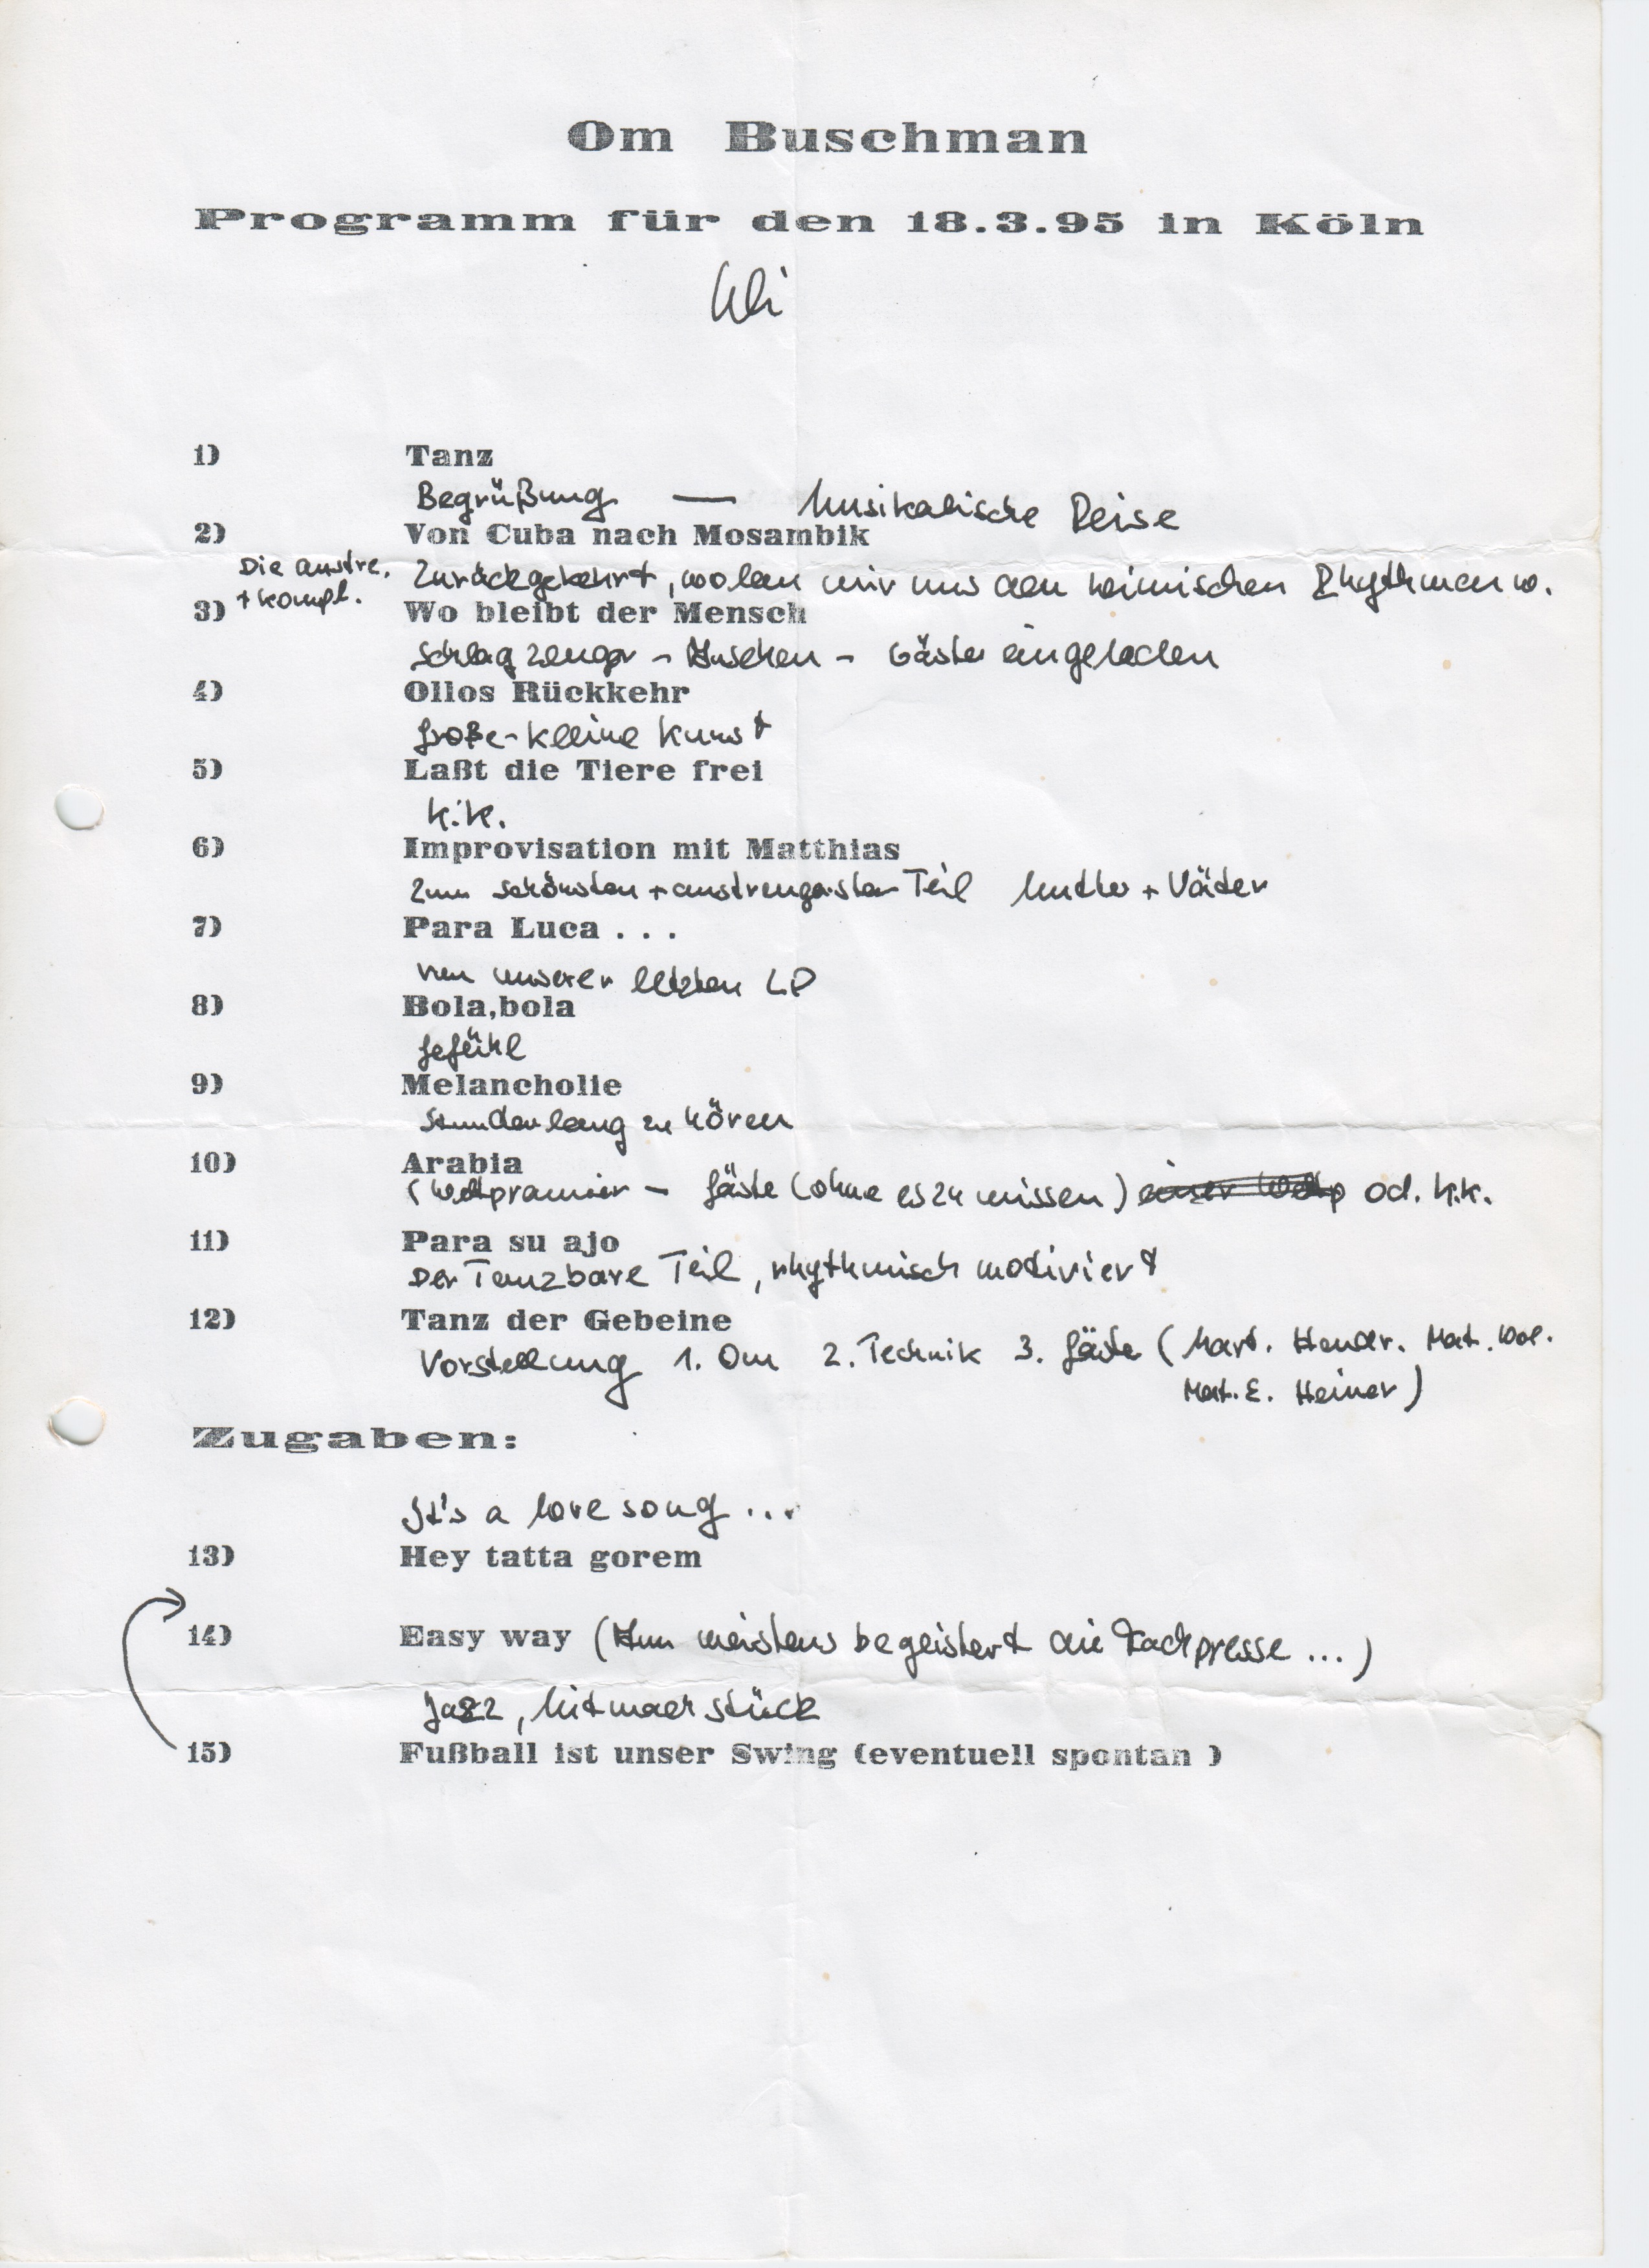 Om Buschman
Programm für den 18.3.95 in Köln
Uli
1) Tanz
Begrüßung — Musikalische Reise
2) Von Cuba nach Mosambik
Die anstre. Zurückgekehrt, wollen wir uns den heimischen Rhythmen w.
+ kompl.
3) Wo bleibt der Mensch
Schlagzeuger - - Gäste eingeladen
4) Ollos Rückkehr
Große-kleine Kunst
5) Laßt die Tiere frei
k.k.
6) Improvisation mit Matthias
Zum schönsten + anstrengensten Teil Mutter + Väter
7) Para Luca . . .
von unserer letzten LP
8) Bola,bola
Gefühl
9) Melancholie
Stundenlang zu hören
10) Arabia
(Weltpramier - Gäste (ohne es zu wissen) einer Weltp od. k.k.
11) Para su ajo
Der Tanzbare Teil, rhythmisch motiviert
12) Tanz der Gebeine
Vorstellung 1. Om 2. Technik 3. Gäste (Mart. Hendr. Mat. Wol.
Mat. E. Heiner)
Zugaben:
It's a love song ...
13) Hey tatta gorem
14) Easy way (Am meistens begeistert die Fachpresse ...)
Jazz, Mitmach stück
15) Fußball ist unser Swing (eventuell spontan )